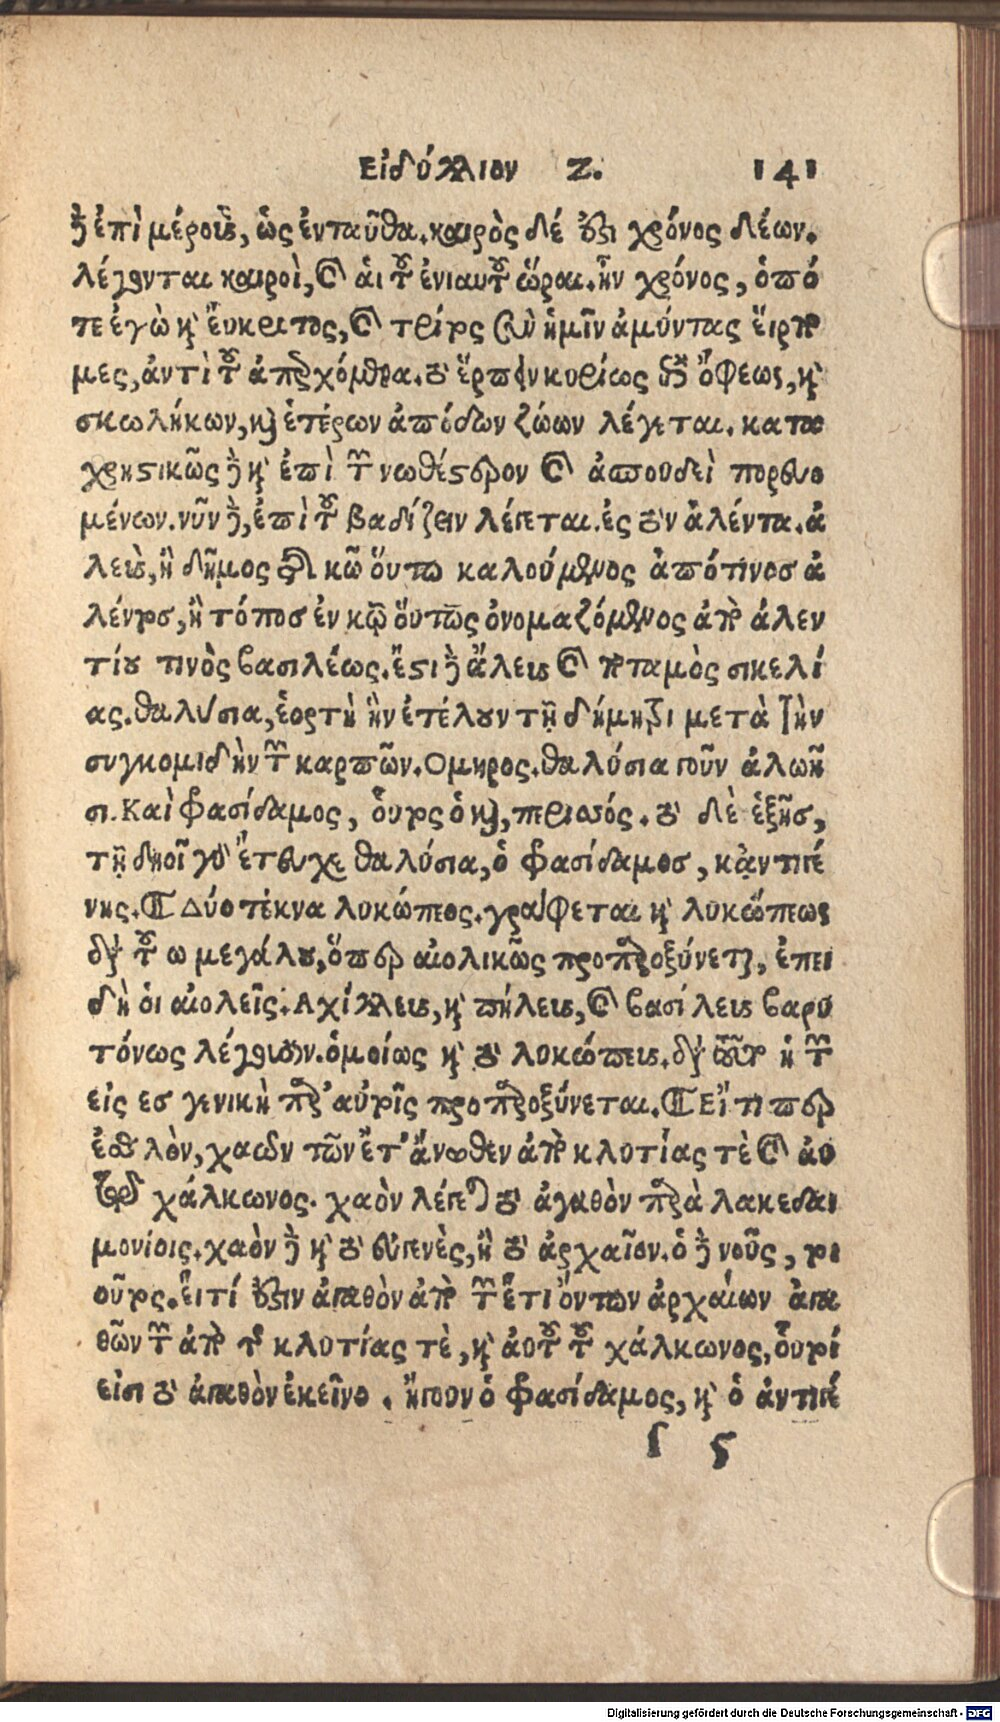 Εἰδύλλιον Ζ. 141
δὲ ἐπὶ μέρους, ὡς ἐνταῦθα. καιρὸς δέ ἐστι χρόνος δέων.
λέγονται καιροὶ, καὶ αἱ τοῦ ἐνιαυτοῦ ὧραι. ἦν χρόνος, ὁπό
τε ἐγὼ καὶ εὔκριτος, καὶ τρίτος σὺν ἡμῖν ἀμύντας εἵρπο
μες, ἀντὶ τοῦ ἀπηρχόμεθα. τὸ ἕρπειν κυρίως ἐπὶ ὄφεως, καὶ
σκωλήκων, καὶ ἑτέρων ἀπόδων ζώων λέγεται. κατα
χρηστικῶς δὲ καὶ ἐπὶ τῶν νωθέστερον καὶ ἀσπουδεὶ πορευο
μένων. νῦν δὲ, ἐπὶ τοῦ βαδίζειν λέγεται. ἐς τὸν ἅλεντα. ἅ
λεις, ἢ δῆμος ἐν κῶ οὕτω καλούμενος ἀπό τινοσ ἅ
λεντοσ, ἢ τόποσ ἐν κῷ οὕτως ὀνομαζόμενος ἀπὸ ἀλεν
τίου τινὸς βασιλέως. ἔστι δὲ ἅλεις καὶ ποταμὸς σικελί
ας. θαλύσια, ἑορτὴ ἣν ἐτέλουν τῇ δήμητρι μετὰ τὴν
συγκομιδὴν τῶν καρπῶν. Ομηρος. θαλύσια γοῦν ἀλωῆ
σι. Καὶ φρασίδαμος, οὗτος ὁ καὶ, περισσός. τὸ δὲ ἑξῆσ,
τῇ δηοῖ γὰρ ἔτευχε θαλύσια, ὁ φρασίδαμοσ, κἀντιγέ
νης. Δύο τέκνα λυκώπεος. γράφεται καὶ λυκώπεως
διὰ τοῦ ω μεγάλου, ὅπερ αἰολικῶς προπαροξύνεται, ἐπει
δὴ οἱ αἰολεῖς. Αχίλλεις, καὶ πήλεις, καὶ βασίλεις βαρυ
τόνως λέγουσιν. ὁμοίως καὶ τὸ λυκώπεις. διὰ τοῦτο ἡ τῶν
εἰς εσ γενικὴ παρ' αὐτοῖς προπαροξύνεται. Εἴ τι περ
ἐσθλὸν, χαῶν τῶν ἔτ' ἄνωθεν ἀπὸ κλυτίας τὲ καὶ αὐ
τοῦ δὲ χάλκωνος. χαὸν λέγεται τὸ ἀγαθὸν παρὰ λακεδαι
μονίοις. χαὸν δὲ καὶ τὸ εὐγενὲς, ἢ τὸ ἀρχαῖον. ὁ δὲ νοῦς, τοι
οῦτος. εἴ τί ἐστιν ἀγαθὸν ἀπὸ τῶν ἔτι ὄντων ἀρχαίων ἀγα
θῶν τῶν ἀπὸ τῆς κλυτίας τὲ, καὶ αὐτοῦ τοῦ χάλκωνος, οὗτοί
εἰσι τὸ ἀγαθὸν ἐκεῖνο. ἤγουν ὁ φρασίδαμος, καὶ ὁ ἀντιγέ
ſ 5
Digitalisierung gefördert durch die Deutsche Forschungsgemeinschaft - DFG